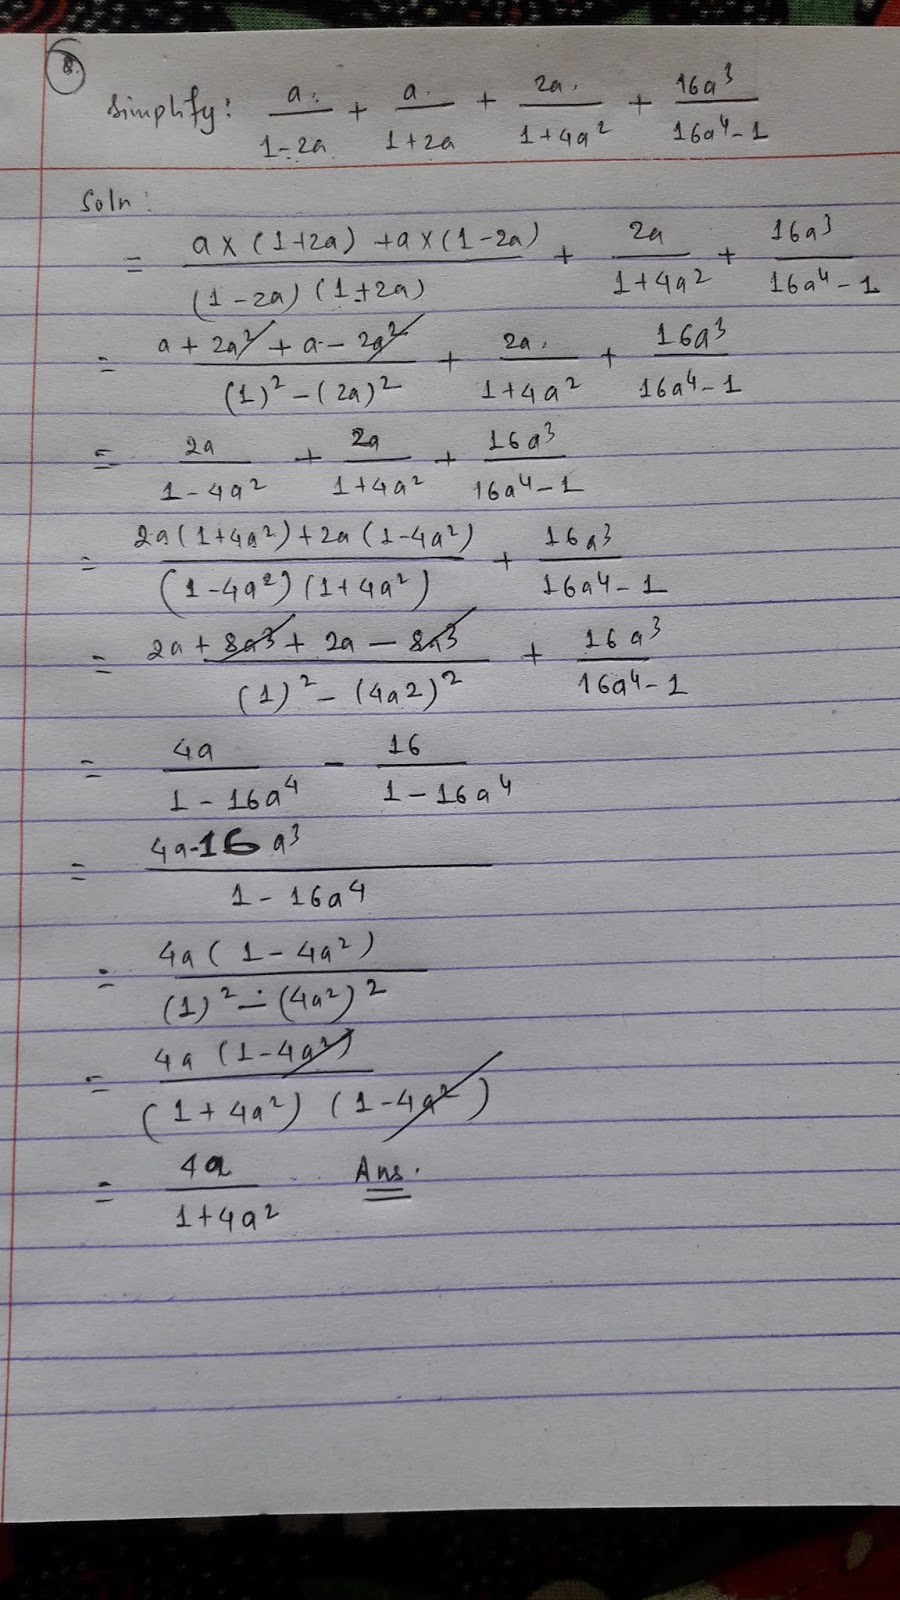 8.
Simplify: a/(1-2a) + a/(1+2a) + 2a/(1+4a²) + 16a³/(16a⁴-1)
Soln:
= (a×(1+2a)+a×(1-2a))/((1-2a)(1+2a)) + 2a/(1+4a²) + 16a³/(16a⁴-1)
= (a+2a²+a-2a²)/((1)²-(2a)²) + 2a/(1+4a²) + 16a³/(16a⁴-1)
= 2a/(1-4a²) + 2a/(1+4a²) + 16a³/(16a⁴-1)
= (2a(1+4a²)+2a(1-4a²))/((1-4a²)(1+4a²)) + 16a³/(16a⁴-1)
= (2a+8a³+2a-8a³)/((1)²-(4a2)²) + 16a³/(16a⁴-1)
= 4a/(1-16a⁴) - 16/(1-16a⁴)
= (4a-16a³)/(1-16a⁴)
= 4a(1-4a²)/((1)²-(4a²)²)
= 4a(1-4a²)/((1+4a²)(1-4a²))
= 4a/(1+4a²) Ans.